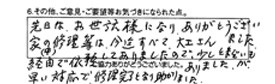 6.その他、ご意見・ご要望等お気づきになられた点。
先日は、お世話様になり、ありがとうござい
家の修理等は、今迄すべて、大工さん
経由で依頼しておりましたので、少し
ありがとうございました。ありましたが、
早い対応で修理完了となり助かりました。